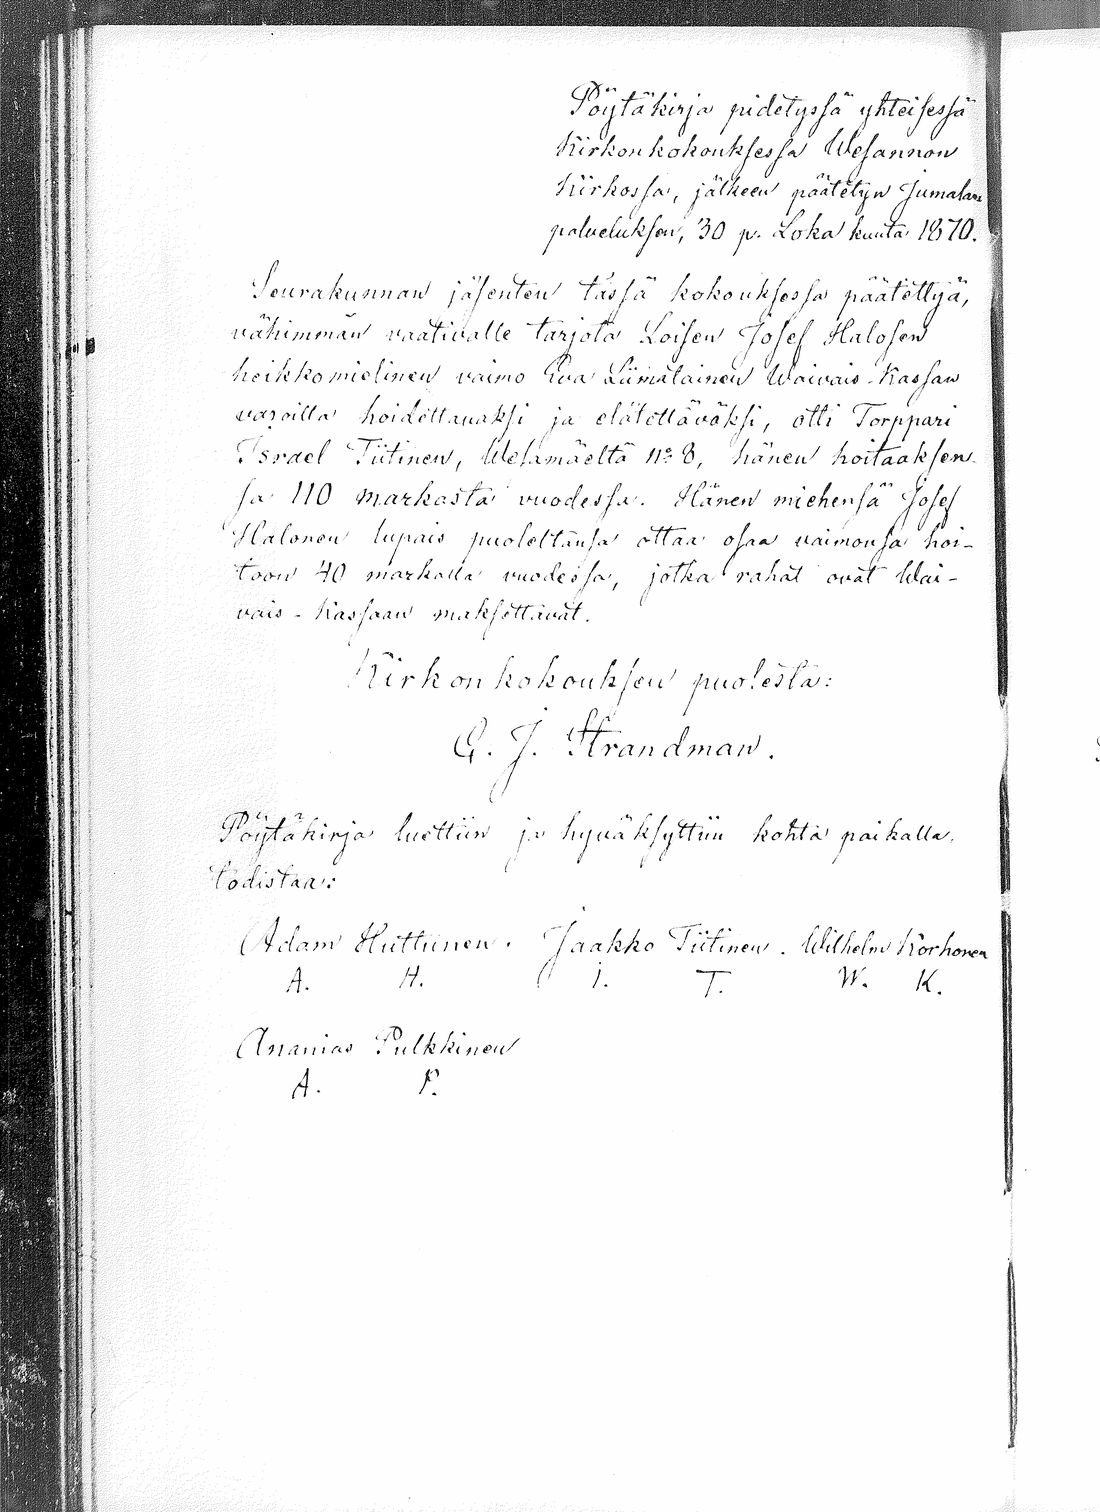 Pöytäkirja pidetyssä yhteisessä
Kirkonkokouksessa Wesannon
Kirkossa, jälkeen päätetyn Jumalan
palveluksen, 30 p. Loka kuuta 1870.
Seurakunnan jäsenten tässä kokouksessa päätettyä,
vähimmän vaativalle tarjota Loisen Josef Halosen
heikkomielinen vaimo Eva Liimatainen Waivais-Kassan
varoilla hoidettavaksi ja elätettäväksi, otti Torppari
Israel Tiitinen, Wesamäeltä No 8, hänen hoitaaksen-
sa 110 markasta vuodessa. Hänen miehensä Josef
Halonen lupais puolettansa ottaa osaa vaimonsa hoi-
toon 40 markalla vuodessa, jotka rahat ovat Wai-
vais-Kassaan maksettavat.
Kirkonkokouksen puolesta:
G. J. Strandman.
Pöytäkirja luettiin ja hyväksyttiin kohta paikalla,
todistaa:
Adam Huttunen. Jaakko Tiitinen. Wilhelm Korhonen
A. H. I. T. W. K.
Ananias Pulkkinen
A. P.